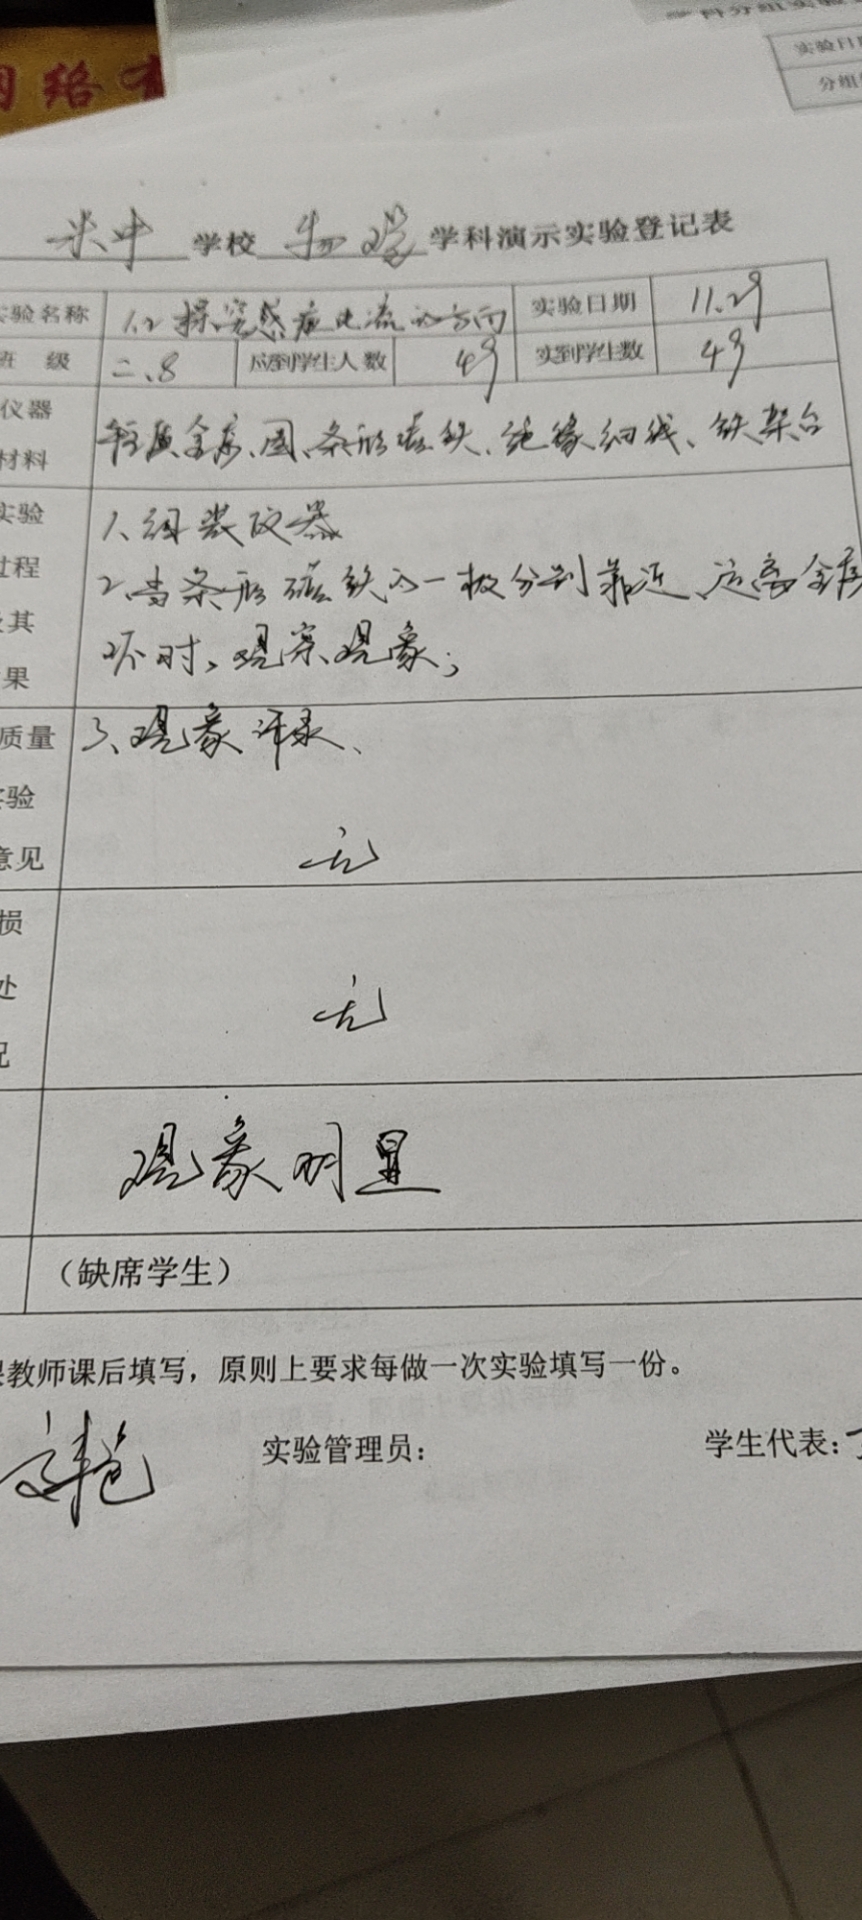 网络有
学科分组实验
实验日期
分组
米中 学校 物理 学科演示实验登记表
实验名称 1.2 探究感应电流的方向 实验日期 11.29
班 级 二.8 应到学生人数 49 实到学生数 49
仪器 轻质金属圆、条形磁铁、绝缘细线、铁架台
材料
实验 1、组装仪器
过程 2、当条形磁铁的一极分别靠近、远离金属
及其 环时,观察现象;
果
质量 3、现象记录、
实验
意见 无
损
处 无
况
现象明显
(缺席学生)
课教师课后填写,原则上要求每做一次实验填写一份。
实验管理员: 学生代表: